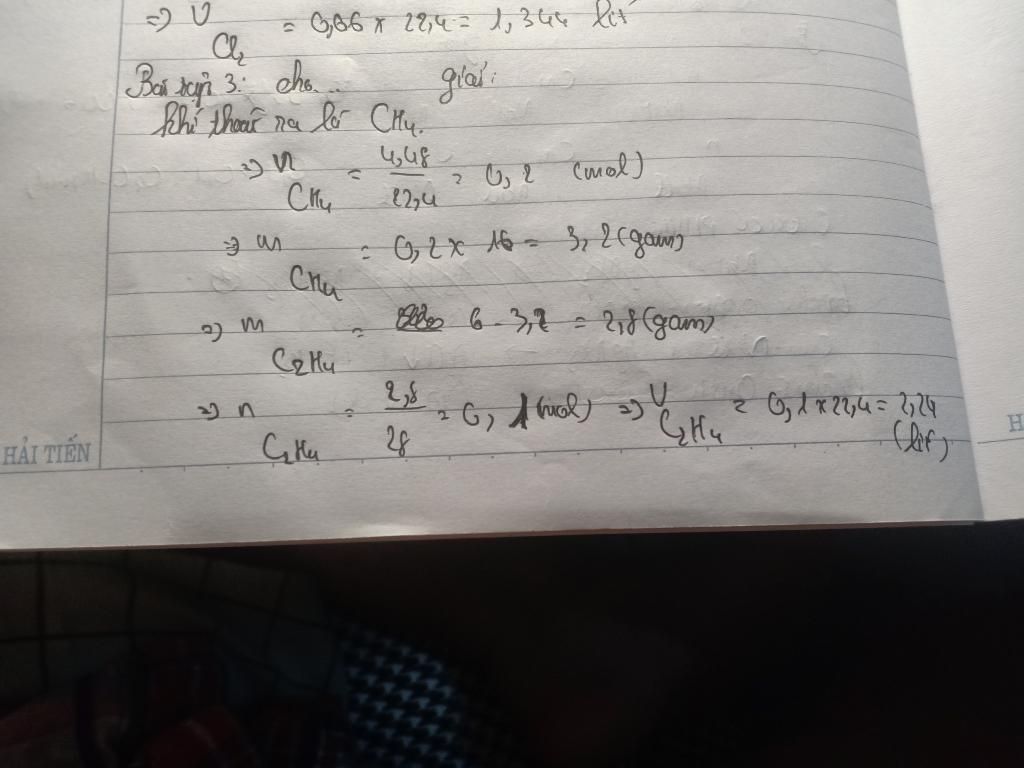 => V Cl2 = 0,06 x 22,4 = 1,344 lít
Bài tập 3: cho... giải:
khí thoát ra là CH4.
=> n CH4 = 4,48 / 22,4 = 0,2 (mol)
=> m CH4 = 0,2 x 16 = 3,2 (gam)
=> m C2H4 = 6 - 3,2 = 2,8 (gam)
=> n C2H4 = 2,8 / 28 = 0,1 (mol) => V C2H4 = 0,1 x 22,4 = 2,24 (lít)
HẢI TIẾN
H